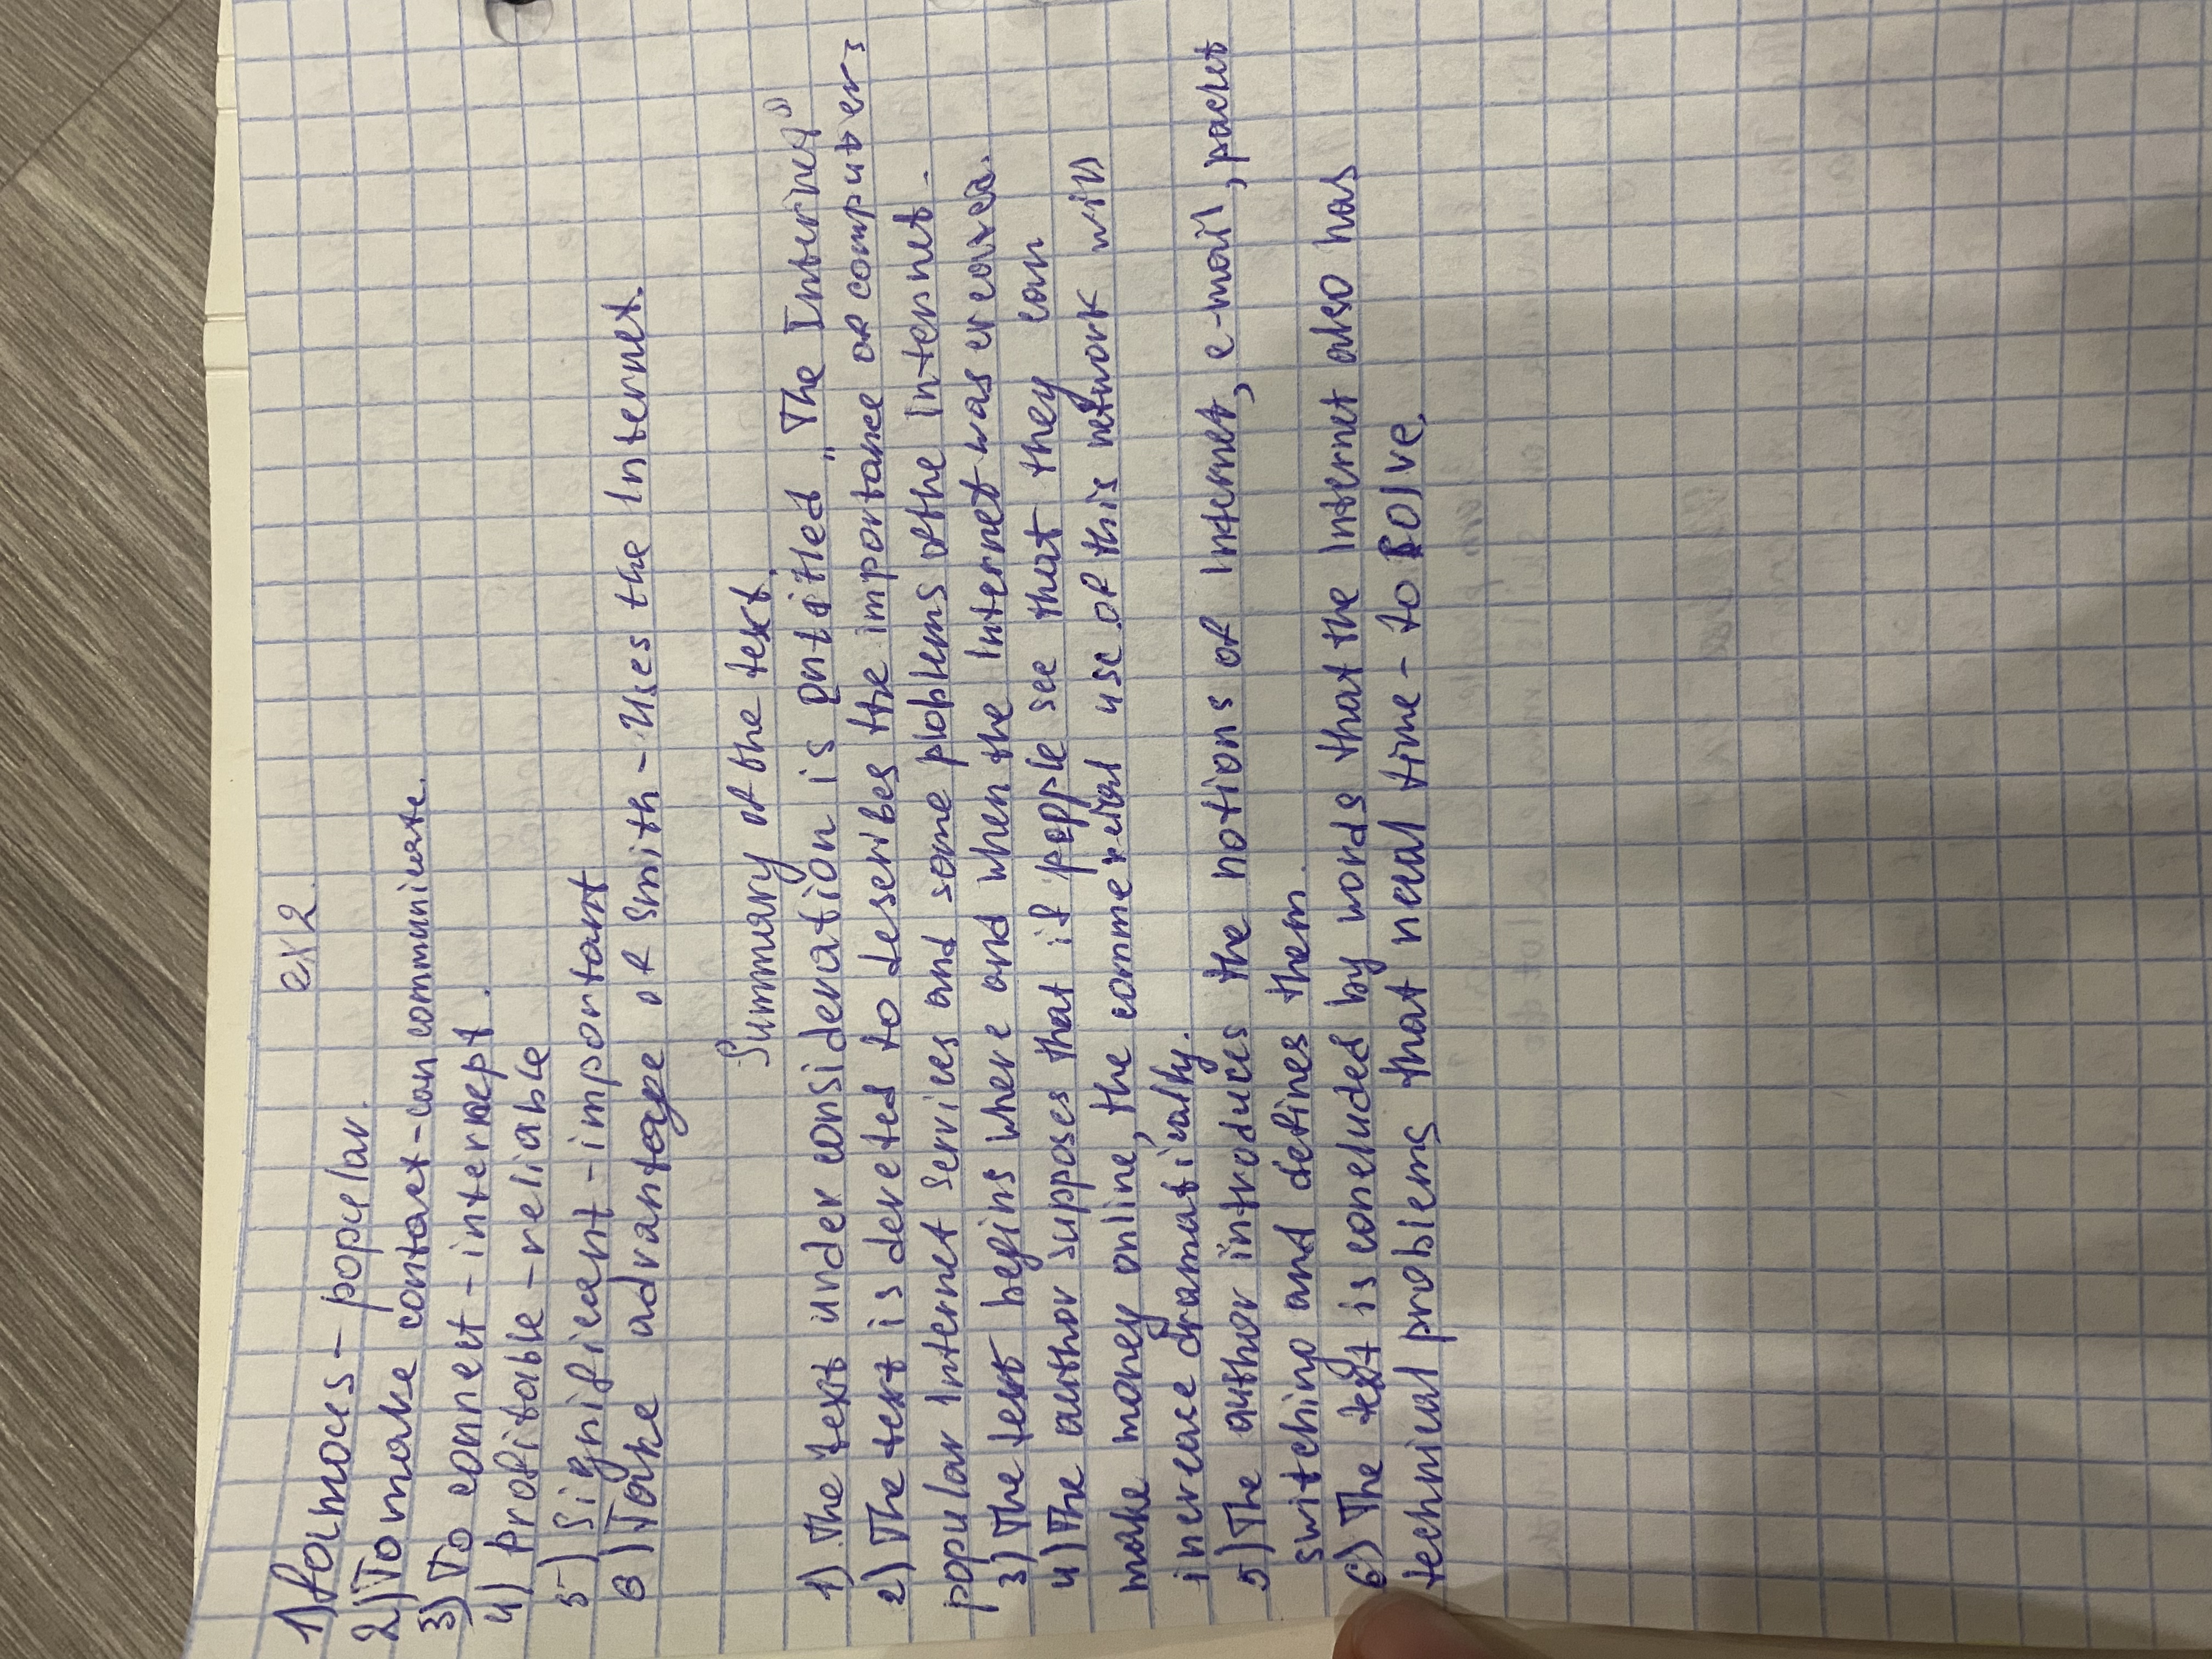 ex2.
1) famoces - popular.
2) To make contact - can communicate.
3) To connet - intercept.
4) Profitable - reliable
5) Significent - important
6) Take advantage of Smith - Uses the Internet.
Summary of the text.
1) The text under consideration is entitled „The Internet”
2) The text is dereted to describes the importance of computers
popular Internet services and some ploblems of the Internet.
3) The text begins where and when the Internet was created.
4) The author supposes that if people see that they can
make money online, the commercial use of this network will
increase dramatically.
5) The author introduces the notions of Internet, e-mail, pacret
switching and defines them.
6) The text is concluded by words that the Internet also has
technical problems that neeal time - to solve.